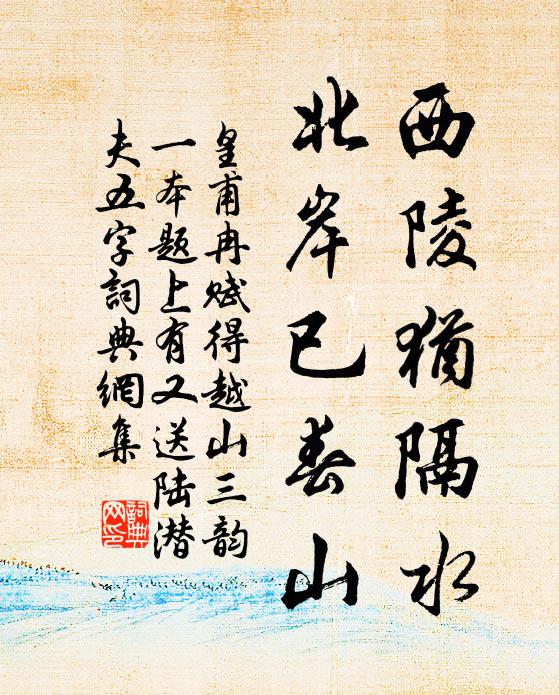 西陵猶隔水
北岸已春山
皇甫冉赋得越山三韵
一本题上有又送陆潜
夫五字詞典網集
詞典
网印